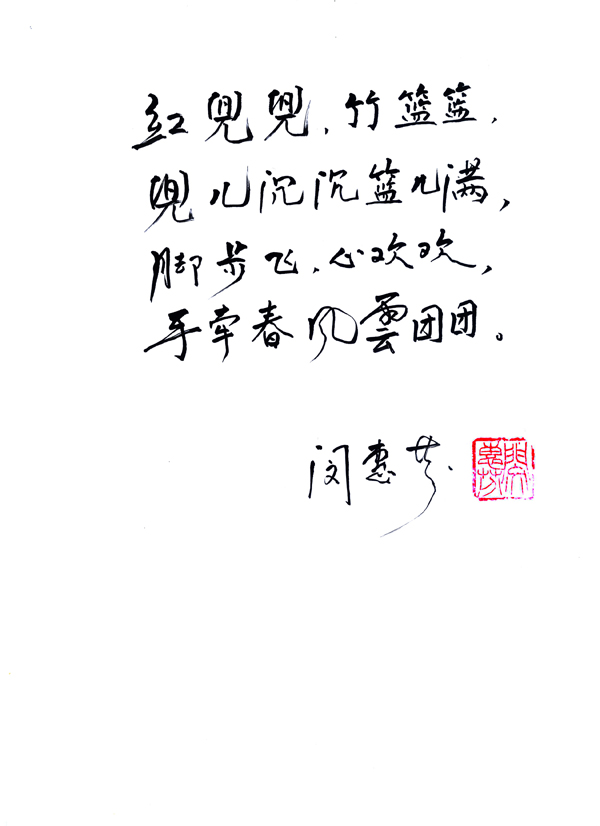 红兜兜，竹篮篮，
兜儿沉沉篮儿满，
脚步飞，心欢欢，
手牵春风雲团团。
闵惠芬
闵惠芬